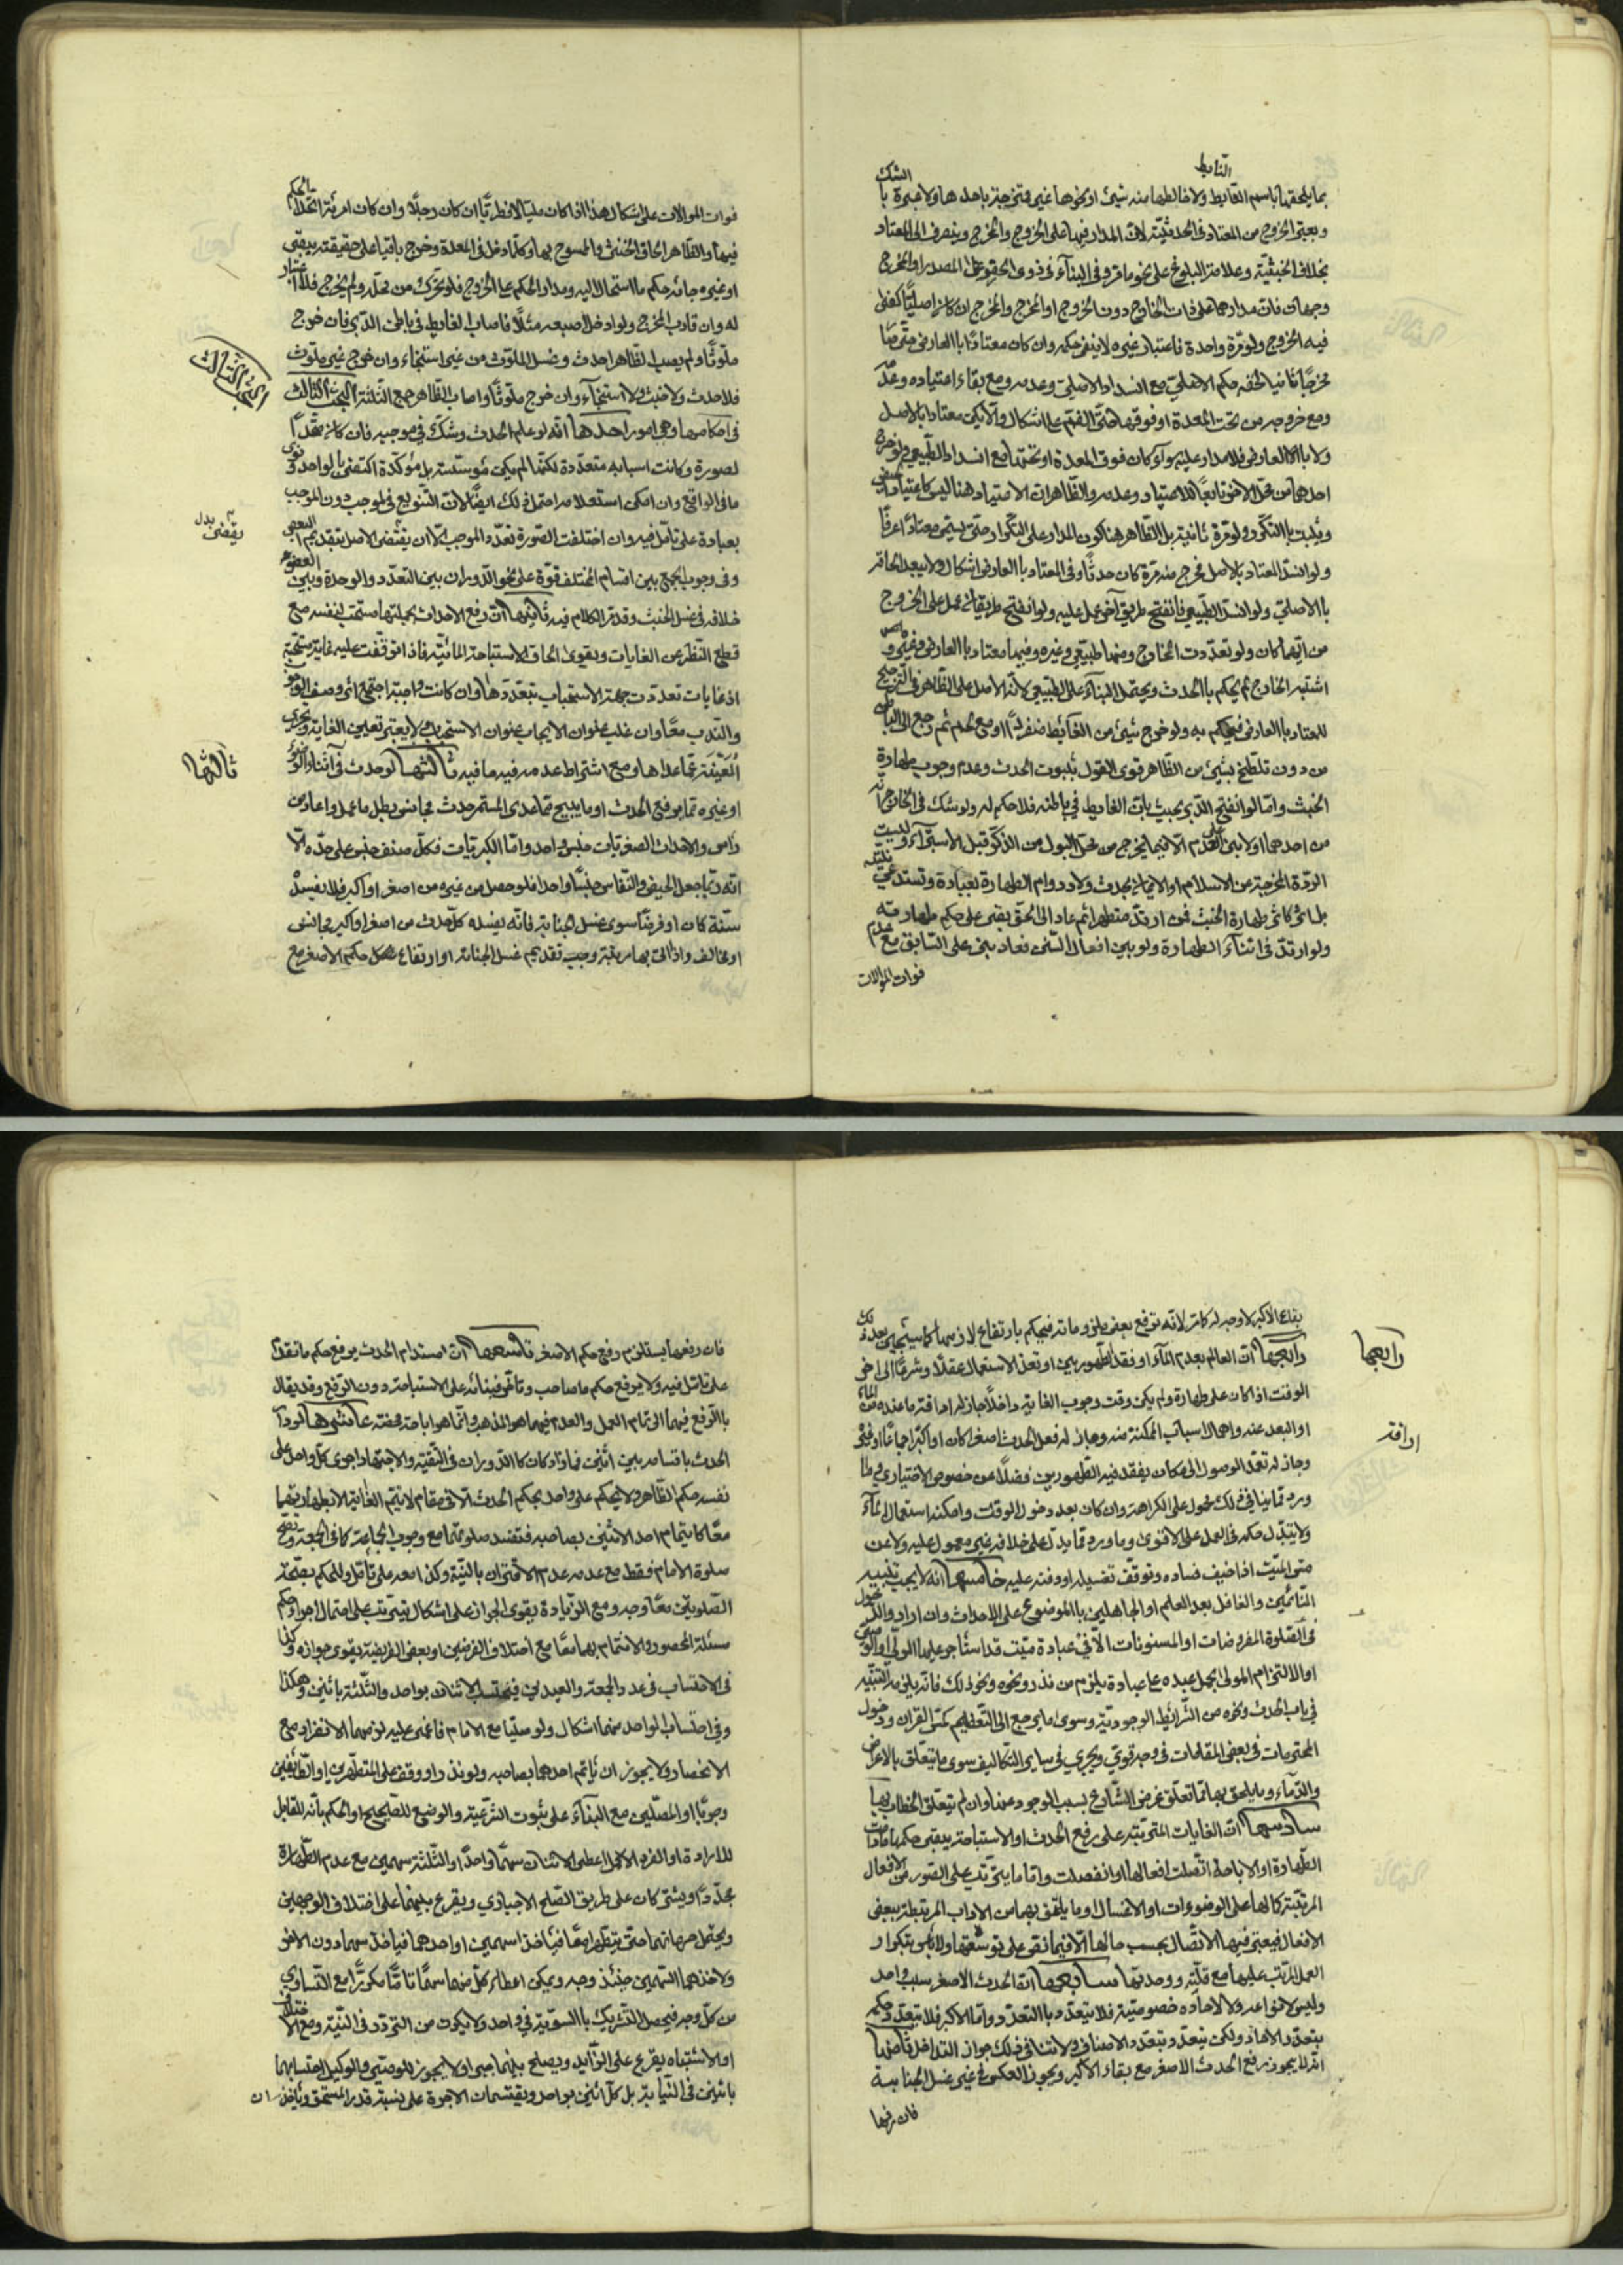 بما يلحقها باسم الغايط ولا خالطها منه شيئ او نحوها غير فتخرجه باحدها ولا عبرة با الشك
ويعتبر الخروج من المعتاد في الحدثية لان المدار فيها على الخروج والمخرج وينصرف الى المعتاد
بخلاف الخبثية وعلامة البلوغ على نحو ما قرر في البناء في ذوى الحقو على المصدر او المخرج
وجهان فان مدارهما على ذات الخارج دون الخروج او المخرج والمخرج ان كان اصليا كفى
فيه الخروج ولو مرة واحدة فاعتبار غيره لا ينفى حكمه وان كان معتادا با العارض
مخرجا ثانيا لحقه حكم الاصلى مع انسداد الاصلى وعدمه ومع بقاء اعتياده وعدمه
ومع خروجه من تحت المعدة او فوقها حتى الفم على اشكال والا يكن معتادا بالاصل
ولا با العارض فلا مدار عليه سوآء كان فوق المعدة او تحتها مع انسداد الطبيعى ولو خرج
احدهما من محل الاخر تابعا للاعتياد وعدمه والظاهر ان الاعتياد هنا ليس كاعتياد الحيض
ويثبت با التكرر ولو مرة ثانية بل الظاهر هنا كون المدار على التكرار حتى يسمى معتادا عرفا
ولو انسد المعتاد بالاصل فخرج منه مرة كان حدثا وفي المعتاد با العارض اشكال ولا يبعد الحاقه
با الاصلى ولو انسد الطبيعى فانفتح طريق آخر عمل عليه ولو انفتح طريقان عمل على الخروج
من ايهما كان ولو تعددت المخارج ومنها طبيعى وغيره وفيها معتاد با العارض وغيره و
اشتبه الخارج لم يحكم با الحدث ويحتمل البناء على الطبيعى لانه الاصل على الظاهر في الترجيح
للمعتاد با العارض فيحكم به ولو خرج شيئ من الغايط منفردا او مع الدم ثم رجع الى الباطن
من دون تلطخ بشيئ من الظاهر قوى القول بثبوت الحدث وعدم وجوب طهارة
الخبث واما لو انفتح الدبر بحيث بان الغايط في باطنه فلا حكم له ولو شك في الخارج انه
من احدهما اولا بنى على العدم الا فيما يخرج من محل البول من الذكر قبل الاستبراء وليست
الردة المخرجة عن الاسلام او الايمان بحدث ولا دوام الطهارة بعبادة وتستدعى نية
بل انى كانى طهارة الخبث فمن ارتد متطهرا ثم عاد الى الحق بقى على حكم طهارته
ولو ارتد في اثناء الطهارة ولو بين افعال الشئ فعاد بنى على السابق مع عدم
فوات الموالات
فوات الموالات على اشكال هذا اذا كان مليا لا فطريا ان كان رجلا وان كان امرئة اتحد الحكم
فيها والظاهر الحاق الخنثى والممسوح بها وكلما دخل في المعدة وخرج باقيا على حقيقته يبقى
او غيره جائه حكم ما استحال اليه ومدار الحكم على الخروج فلو تحرك من محله ولم يخرج فلا اعتبار
له وان قارب المخرج ولو ادخل اصبعه مثلا فاصاب الغايط في باطن الدبر فان خرج
ملوثا ولم يصب الظاهر احدث وغسل الملوث من غير استنجاء وان خرج غير ملوث
فلا حدث ولا خبث ولا استنجاء وان خرج ملوثا واصاب الظاهر جمع الثلثة البحث الثالث
البحث الثالث
في احكامها وهي امور احدها انه لو علم الحدث وشك في موجبه فان كان متحدا
لصورة وكانت اسبابه متعددة لكنها لم يكن مؤسسة بل مؤكدة اكتفى بالواحد ونوى
ما في الواقع وان امكن استعلامه احتمل ذلك ايضا لان التنويع في الموجب دون الموجب
يقضى بدل
بعبادة على تامل فيه وان اختلفت الصورة تعدد الموجب الا ان يقتضى الاصل تقديم البعض
وفي وجوب الجمع بين اقسام المختلف قوة على نحو الدوران بين التعدد والوحدة وبين العضو
خلافه في غسل الخبث وقد مر الكلام فيه ثانيها ان رفع الاحداث بجملتها مستحب لنفسه مع
قطع النظر عن الغايات ويقوى الحاق الاستباحة المائية فاذا توقفت عليه غاية مستحبة
او غايات تعددت جهة الاستحباب بتعددها وان كانت واجبة اجتمع اى وصف الوجوب
والندب معا وان غلب عنوان الايجاب عنوان الاستحباب ولا يعتبر تعيين الغاية وتحرى
المعينة عما عداها ومع اشتراط عدمه فيه ما فيه ثالثها لو حدث في اثناء الوضوء
ثالثها
او غيره مما يرفع الحدث او ما يبيح مما عدى المستمر حدث مجانس بطل ما عمل واعاد من
راس والاحداث الصغريات جنس واحد واما الكبريات فكل صنف جنس على حده الا
انه ربما جعل الحيض والنفاس جنسا واحدا فلو حصل من غيره من اصغر او اكبر فلا يفسد
سنة كان او فرضا سوى غسل الجنابة فانه يفسده كل حدث من اصغر او اكبر مجانس
او مخالف واذا اتى بها مرتبة وجب تقديم غسل الجنابة او ارتفاع حكم الاصغر مع
بقاء الاكبر لا وجه له كانه لانه ترفع بعض ملزوماته فيحكم بارتفاع لازمها كما سيجيئ بعد ذلك
رابعها
رابعها ان العالم بعدم الماء او فقد الطهورين او تعذر الاستعمال عقلا وشرعا الى اخر
الوقت اذا كان على طهارة ولم يكن وقت وجوب الغاية داخلا جاز له اراقة ما عنده من الماء
او البعد عنه واهمال اسباب الممكنة منه وجاز له فعل الحدث اصغرا كان او اكبرا جماعا او غيره
اراقة
وجاز له تعمد الوصول الى مكان يفقد فيه الطهورين فضلا عن خصوص الاختيارى فما
ورد مما ينافى ذلك محمول على الكراهة وان كان بعد دخول الوقت وامكنه استعمال الماء
ولا يتبدل حكمه في العمل على الاقوى وما ورد مما يدل على خلافه غير معمول عليه ولا عن
متى الميت اذا خيف فساده وتوقف تغسيله او دفنه عليه خامسها انه لا يجب تنبيه
النائمين والغافل بعد العلم او الجاهلين با الموضوع على الاحداث وان اراد والدخول
في الصلوة المفروضات او المسنونات الا في عبادة ميت قد استاجر عليها الولى او الوصى
او الالتزام المولى بحمل عبده على عبادة يلزم من نذر ونحوه ونحو ذلك فانه يلزمه التنبيه
في باب الحدث ونحوه من الشرائط الوجودية وسوى ما يرجع الى التعظيم كمس القران ودخول
المحترمات في بعض المقامات في وجه قوى ويجرى في ساير التكاليف سوى ما يتعلق بالاعراض
والدماء وما يلحق بها مما تعلق غرض الشارع بسبب الوجود عنها وان لم يتعلق الخطاب بها
سادسها ان الغايات المترتبة على رفع الحدث او الاستباحة يبقى حكمها ما دامت
الطهارة او الاباحة اتصلت افعالها او انفصلت واما ما يترتب على الصور من الافعال
المرتبة كمالها على الوضوءات او الاغسال وما يلتحق بهما من الاداب المرتبطة ببعض
الافعال فيعتبر فيها الاتصال بحسب حالها الا فيما نص على توسعتها ولا باس بتكرار
العمل المرتب عليها مع قلته ووحدتها سابعها ان الحدث الاصغر سبب واحد
وليس لانواعه ولا لاحاده خصوصية فلا يتعدد با التعدد واما الاكبر فلا يتعدد حكمه
بتعدد الاحاد ولكن يتعدد بتعدد الاصناف ولا تنافى ذلك جواز التداخل ثامنها
انه لا يجوز رفع الحدث الاصغر مع بقاء الاكبر ويجوز العكس في غير غسل الجنابة
فان رفعها
فان رفعها يستلزم رفع حكم الاصغر تاسعها ان مستدام الحدث يرفع حكم ما تقدم
على تامل فيه ولا يرفع حكم ما صاحب وتاخر فبنائه على الاستباحة دون الرفع وقد يقال
با الرفع فيهما الى تمام العمل والعدم فيهما هو المذهب وانما هو اباحة محضة عاشرها لو دار
الحدث باقسامه بين اثنين فما زاد كان كالدوران في التقية والاجتهاد اجرى كل واحد على
نفسه حكم الظاهر ولا يحكم على واحد بحكم الحدث الا في مقام لا يتم الغاية الا بطهارتهما
معا كايتمام احد الاثنين بصاحبه فتفسد صلوتهما مع وجوب الجماعة كما في الجمعة وتصح
صلوة الامام فقط مع عدمه عدم الاقتران بالنية وكذا معه على تامل وللحكم بصحة
الصلوتين معا وجه ومع الزيادة يقوى الجواز على اشكال يترتب على احتمال اجراء حكم
مسئلة المحصور والائتمام بهما معا مع اختلاف الفرضين او بعض الفريضة يقوى جوازه وكذا
في الاحتساب في عدد الجمعة والعيدين فيحتسب الاثنان بواحد والثلثة باثنين وهكذا
وفي احتساب الواحد منهما اشكال ولو صليا مع الامام فاغمى عليه لزمهما الانفراد مع
الانحصار ولا يجوز ان ياتم احدهما بصاحبه ولو نذر او وقف على المتطهرين او الطايفين
وجوبا او المصلين مع البناء على ثبوت الشرعية والوضع للصحيح او الحكم بانه المقابل
للارادة او الفرد الاكمل اعطى الاثنان سهما واحدا والثلثة سهمين مع عدم الطهارة
مجددا ويشتركان على طريق الصلح الاجبارى ويقرع بينهما على اختلاف الوجهين
ويحتمل حرمانهما حتى يتطهرا معا فياخذا سهمين او احدهما فياخذ سهما دون الاخر
ولاخذهما السهمين حينئذ وجه ويمكن اعطاء كل منهما سهما تاما مكررا مع التساوى
من كل وجه فيحصل التشريك با السوية في واحد ولا يكون من التردد في النية ومع الاختلاف
او الاشتباه يقرع على الزايد ويصلح بينهما جبرا ولا يجوز للوصى والوكيل احتسابهما
باثنين في النيابة بل كل اثنين بواحد ويقتسمان الاجرة على نسبة قدر المستحق وياخذان